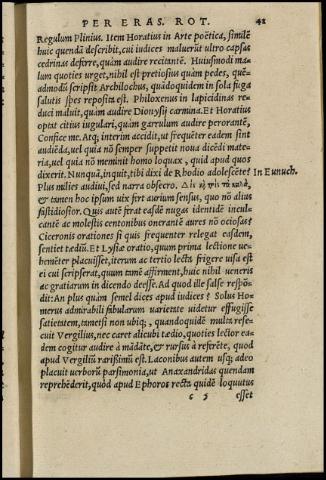 PER ERAS. ROT. 42
Regulum Plinius. Item Horatius in Arte poëtica, similē
huic quendā describit, cui iudices maluerūt ultro capsas
cedrinas deferre, quàm audire recitantē. Huiusmodi ma
lum quoties urget, nihil est pretiosius quàm pedes, quē-
admodū scripsit Archilochus, quādoquidem in sola fuga
salutis spes reposita est. Philoxenus in lapicidinas re-
duci maluit, quàm audire Dionysij carmina. Et Horatius
optat citius iugulari, quàm garrulum audire perorantē,
Confice me. Atq; interim accidit, ut frequēter eadem sint
audiēda, uel quia nō semper suppetit noua dicēdi mate-
ria, uel quia nō meminit homo loquax, quid apud quos
dixerit. Nunquā, inquit, tibi dixi de Rhodio adolescēte?
In Eunuch.
Plus milies audiui, sed narra obsecro. Δὶς καὶ τρὶς τὰ καλὰ,
& tamen hoc ipsum uix fert aurium sensus, quo nō alius
fastidiosior. Quis autē ferat easdē nugas identidē incul-
cantē ac molestis centonibus onerantē aures nō ociosas?
Ciceronis orationes si quis frequenter relegat easdem,
sentiet tædiū. Et Lysiæ oratio, quum prima lectione ue-
hemēter placuisset, iterum ac tertio lecta frigere uisa est
ei cui scripserat, quum tamē affirment, huic nihil ueneris
ac gratiarum in dicendo deesse. Ad quod ille salse respō-
dit: An plus quàm semel dices apud iudices? Solus Ho-
merus admirabili fabularum uarietate uidetur effugisse
satietatem, tametsi non ubiq;, quandoquidē multa rese-
cuit Vergilius, nec caret alicubi tædio, quoties lector ea-
dem cogitur audire à mādāte, & rursus à referēte, quod
apud Vergiliū rarißimū est. Laconibus autem usq; adeo
placuit uerborū parsimonia, ut Anaxandridas quendam
reprehēderit, quòd apud Ephoros recta quidē loquutus
c 5 esset